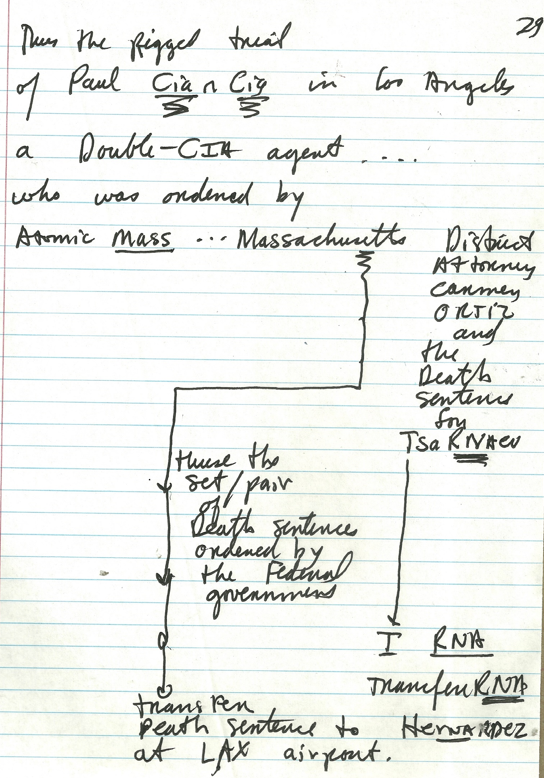 29
Thus the rigged trial
of Paul Cia n Cia in Los Angeles
a Double-CIA agent ....
who was ordered by
Atomic Mass ... Massachusetts District
Attorney
Carmen
ORTIZ
and
the
Death
sentence
for
Tsa RNAev
these the
set/pair
of
Death sentences
ordered by
the Federal
government
T RNA
Transfer RNA
transfer
Death sentence to HeRNANDEZ
at LAX airport.